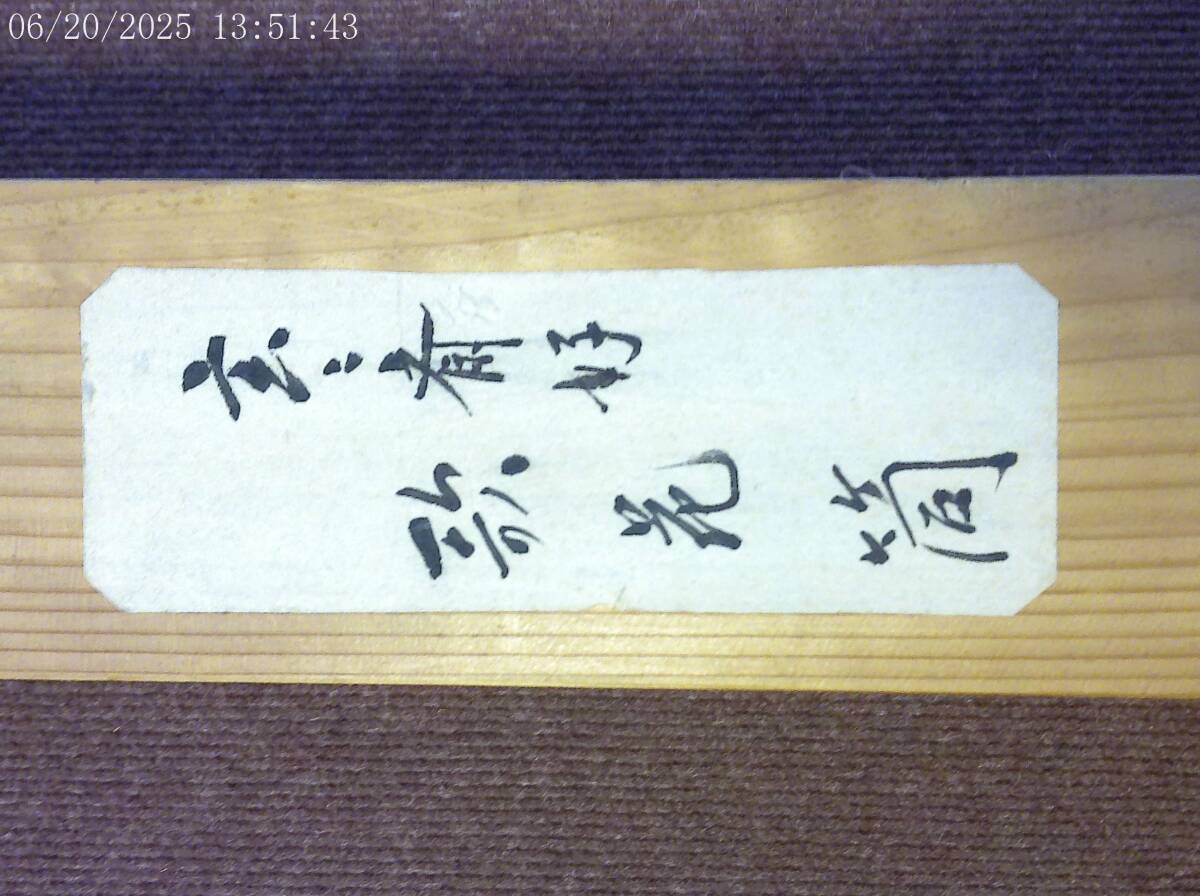 06/20/2025 13:51:43
玄〻斎好
歌花筒